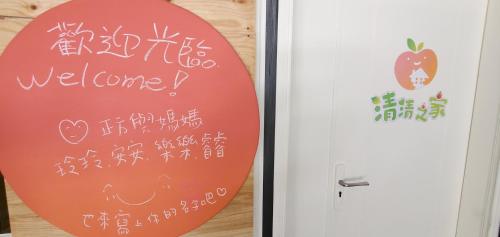 歡迎光臨
Welcome!
與媽媽
玲玲、安安、樂樂、睿睿
也來寫上你的名字吧
清清之家